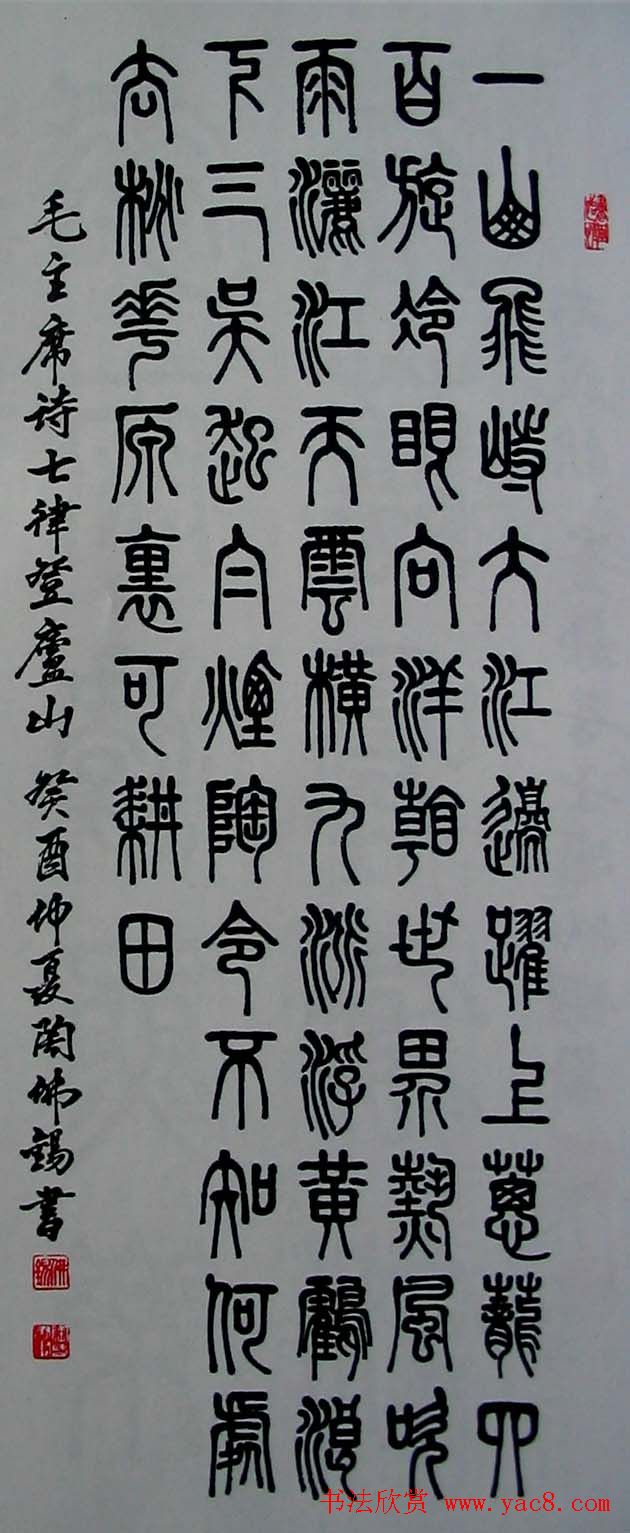 一山飛峙大江邊躍上蔥蘢四
百旋冷眼向洋看世界熱風吹
雨灑江天雲橫九派浮黃鶴浪
下三吳起白煙陶令不知何處
去桃花原裏可耕田
毛主席诗七律登廬山 癸酉仲夏陶佛錫書
书法欣赏 www.yac8.com